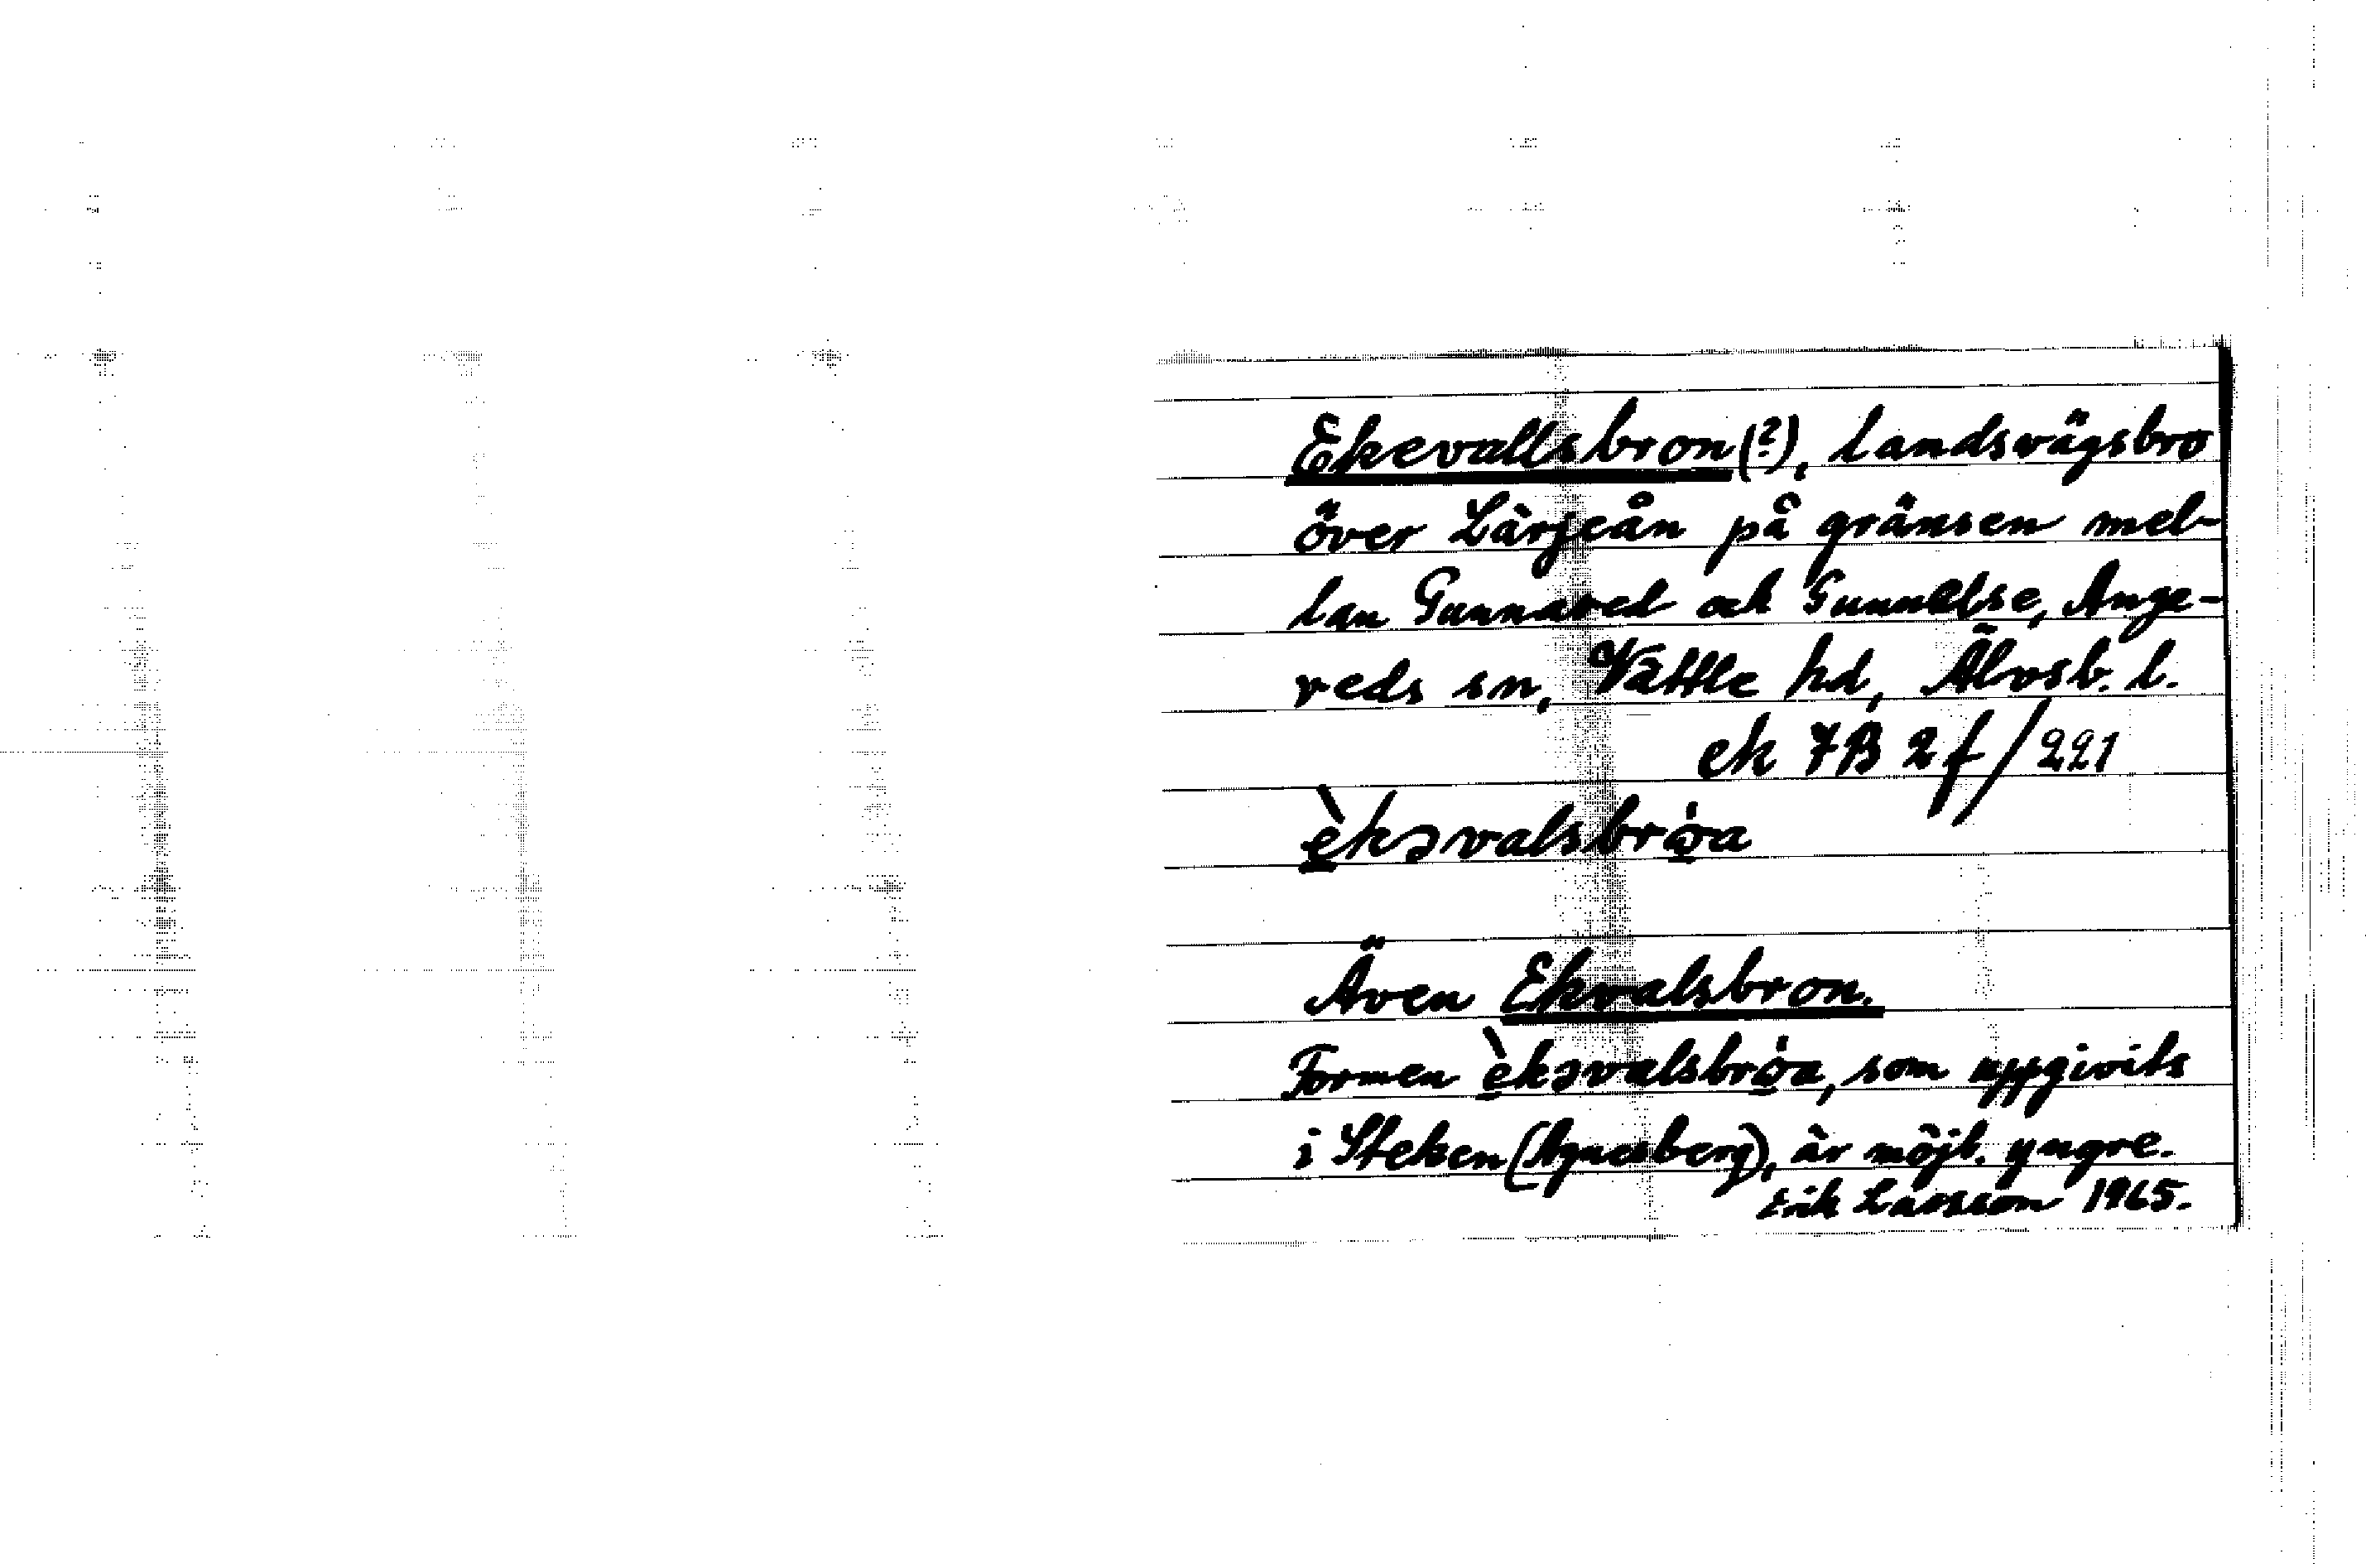 Ekevallsbron(?), landsvägsbro
över Lärjeån på gränsen mel-
lan Gunnared och Gunnelse, Ange-
reds sn, Vättle hd, Älvsb. l.
ek 7B 2f/221
èkəvalsbrọ̀a
Även Ekvalsbron.
Formen èkəvalsbrọ̀a, som uppgivits
i Steken (Agnesberg), är möjl. yngre.
Erik Larsson 1965.